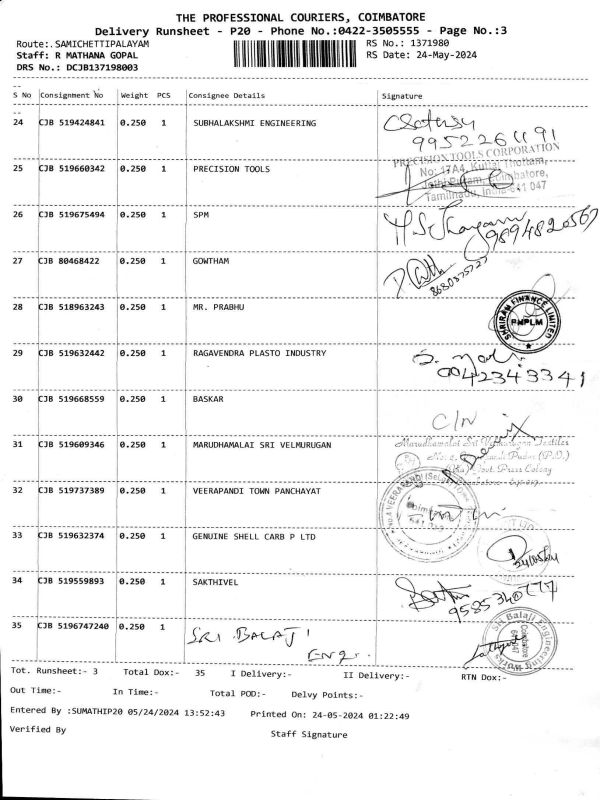 THE PROFESSIONAL COURIERS, COIMBATORE
Delivery Runsheet - P20 - Phone No.:0422-3505555 - Page No.:3
Route:.SAMICHETTIPALAYAM RS No.: 1371980
Staff: R MATHANA GOPAL RS Date: 24-May-2024
DRS No.: DCJB137198003
--
S No Consignment No Weight PCS Consignee Details Signature
--
24 CJB 519424841 0.250 1 SUBHALAKSHMI ENGINEERING
9952261191
25 CJB 519660342 0.250 1 PRECISION TOOLS
PRECISION TOOLS CORPORATION
No: 17A4, Kuttai Thottam,
Jothi Puram, Coimbatore,
Tamilnadu, India-641 047
26 CJB 519675494 0.250 1 SPM
9894820567
27 CJB 80468422 0.250 1 GOWTHAM
28 CJB 518963243 0.250 1 MR. PRABHU
SHRIRAM FINANCE LIMITED
PNPLM
29 CJB 519632442 0.250 1 RAGAVENDRA PLASTO INDUSTRY
30 CJB 519668559 0.250 1 BASKAR
C/N
31 CJB 519609346 0.250 1 MARUDHAMALAI SRI VELMURUGAN
Marudhamalai Sri Velmurugan Textiles
Govt. Press Colony
32 CJB 519737389 0.250 1 VEERAPANDI TOWN PANCHAYAT
33 CJB 519632374 0.250 1 GENUINE SHELL CARB P LTD
34 CJB 519559893 0.250 1 SAKTHIVEL
35 CJB 5196747240 0.250 1 SRI BALAJI
ENGG.
Sri Balaji Engineering Works
Coimbatore
Tot. Runsheet:- 3 Total Dox:- 35 I Delivery:- II Delivery:- RTN Dox:-
Out Time:- In Time:- Total POD:- Delvy Points:-
Entered By :SUMATHIP20 05/24/2024 13:52:43 Printed On: 24-05-2024 01:22:49
Verified By Staff Signature